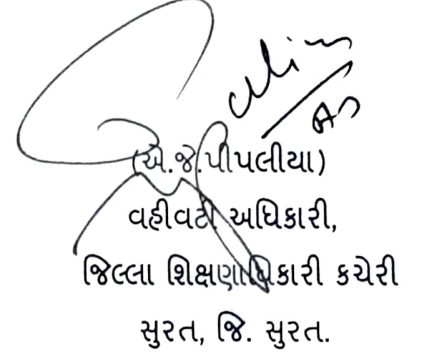 (એ.જે.પીપલીયા)
વહીવટી અધિકારી,
જિલ્લા શિક્ષણાધિકારી કચેરી
સુરત, જિ. સુરત.